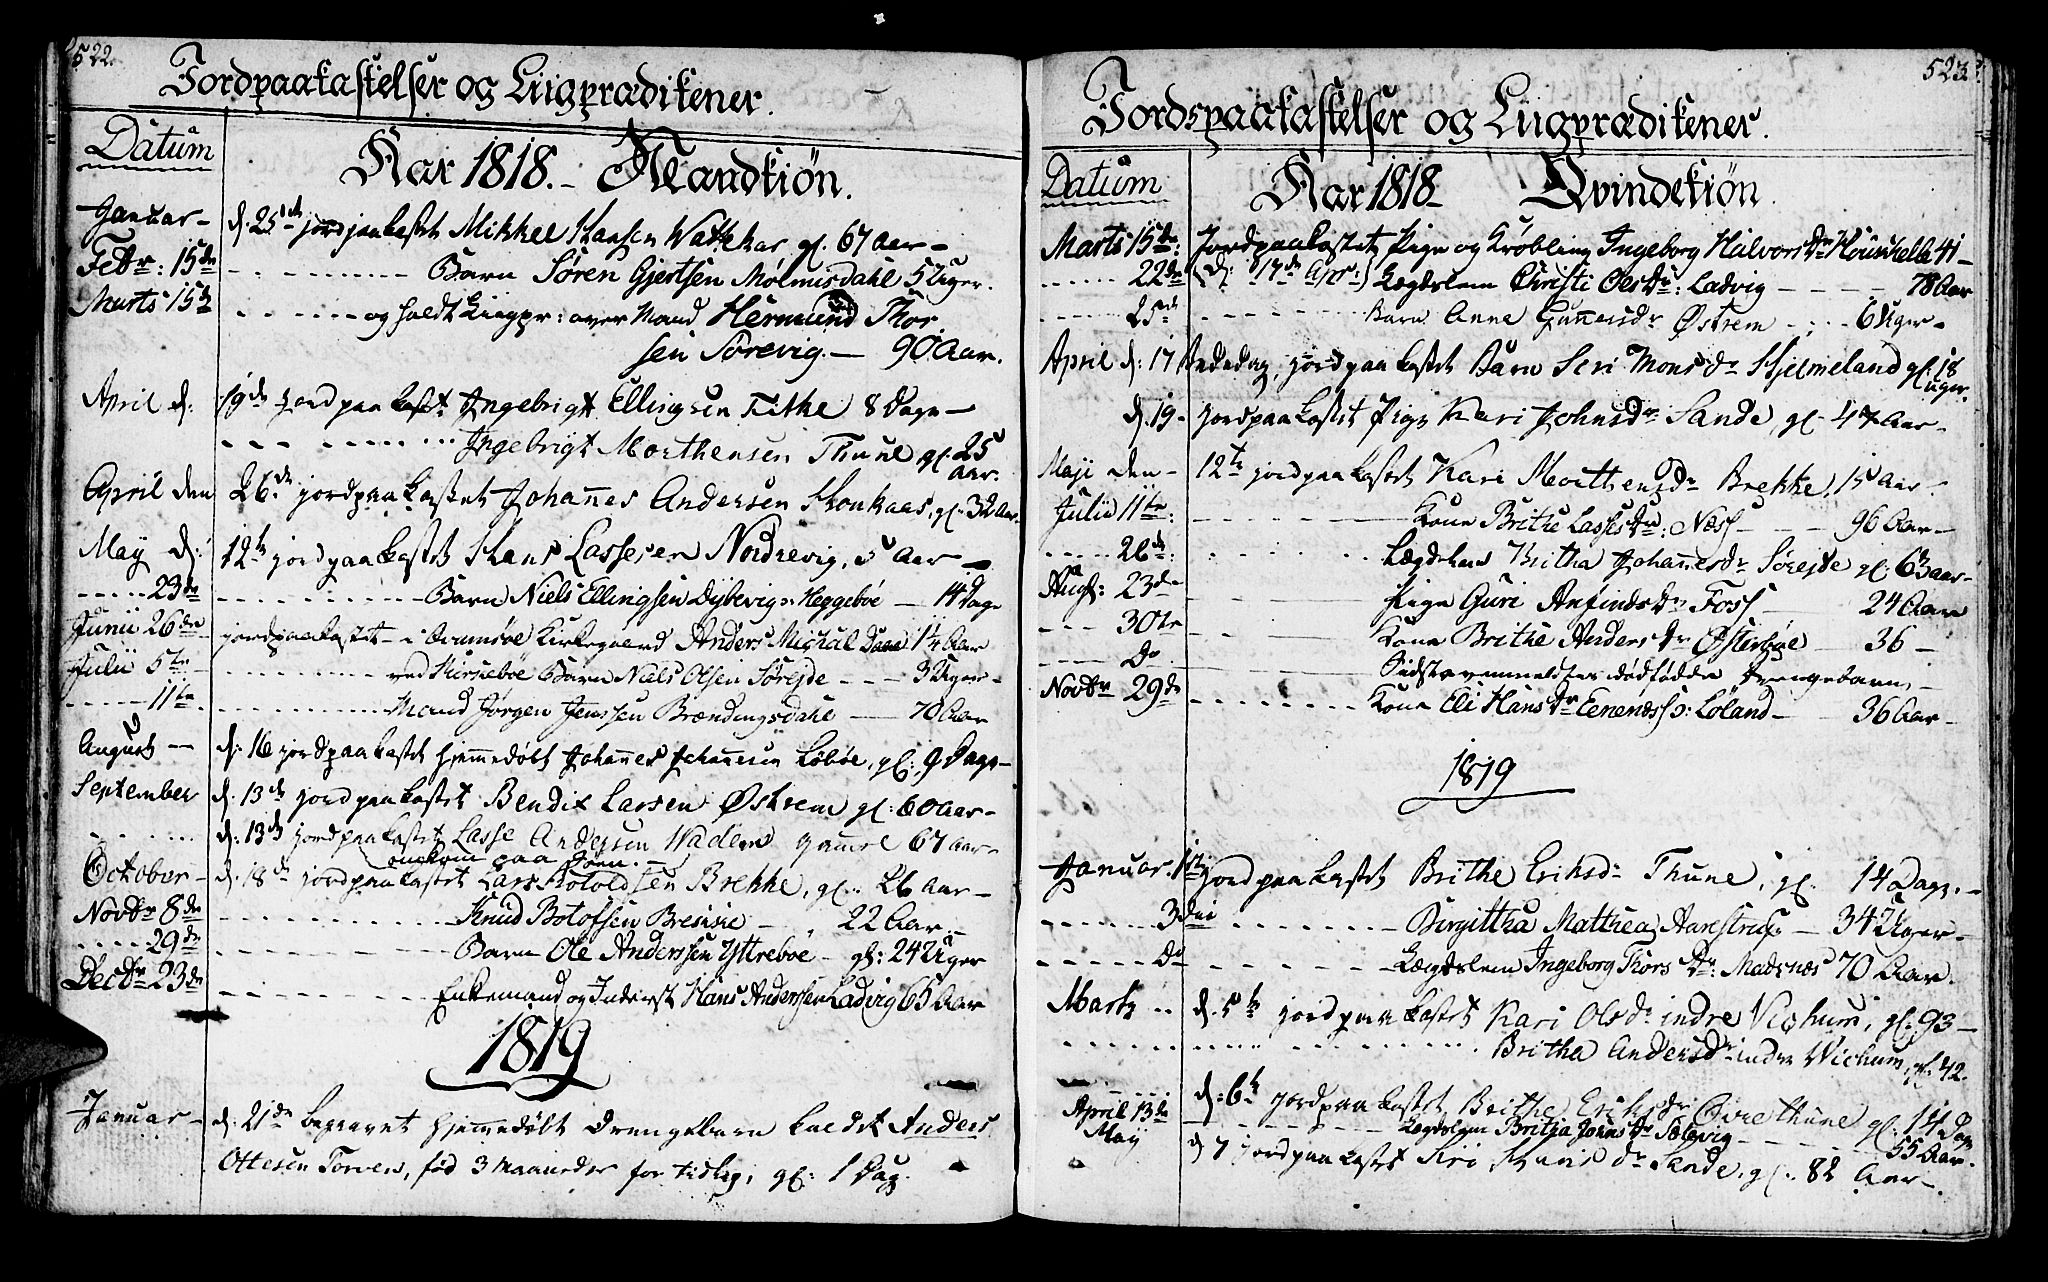 522.
Jordpaakastelser og Liigprædikener.
Datum
Aar 1818. - Mandkiøn.
Januar - d. 25de jordpaakastet Mikkel Hansen Wathkar gl. 67 Aar -
Febr: 15de - - - Barn Søren Gjertsen Molmisdahl 5 Uger.
Marts 15de - - - og holdt Liigpr: over Mand Hermund Thor
sen Sørevig. - 90 Aar.
April d: 19de jordpaakast Ingebrigt Ellingsen Fithe 8 Dage -
- - - Ingebrigt Morthensen Thune gl. 25
Aar.
April den 26de jordpaakastet Johannes Andersen Skonkaas, gl. 32 Aar
May d: 12te jordpaakastet Hans Lassesen Nordrevig, 5 Aar -
- - - 23de - - - Barn Niels Ellingsen Dybevig v: Heggebøe - 14 Dage
Junii 26de jordpaakastet - i Kirkegaard Anders Michal Daae 1 1/4 Aar
Julii 5te - - - ved Barn Niels Olsen Sørejde - - - 3 Uger -
- - - 11te - - - Mand Jørgen Jenssen Brændingsdahl - 70 Aar
August - d: 16 jordpaakastet hjemmedøbt Johannes Johannesen Løbøe, gl: 9 Dage -
September d. 13de jordpaakastet Bendix Larsen Østrem gl: 60 Aar -
- - - d: 13de jordpaakastet Lasse Andersen Wadem gammel 67 Aar -
omkom paa Søen. -
October - d. 18de jordpaakastet Lars Botoldsen Brekke, gl. 26 Aar -
Novbr 8de - - - Knud Botofsen Brekke - 22 Aar. -
- - - 29de - - - Barn Ole Anderssen Yttrebøe - gl: 24 Uger
Decbr 23de - - - Enkemand og Inderst Hans Anderssen Ladvig 65 Aar
1819
Januar - d. 21de begravet hjemmedøbt Drengebarn kaldet Anders
Ottesen Torven, fød 3 Maaneder for tidlig, gl: 1 Dag.
523.
Jordspaakastelser og Liigprædikener.
Datum
Aar 1818 - Qvindekiøn
Marts 15de: Jordpaakastet Pige og Krøbling Ingeborg Halvorsdr 41 -
- - - 22de (d: 17de Apr:) Lægdslem Christi Olsdr: Ladvig - - - 78 Aar
- - - 25de - - - Barn Anne Gunnersdr Østrem - - - 6 Uger -
April d: 17 Bededag, jordpaakastet Barn Seri Monsdr Hjelmeland gl. 18
Uger.
d. 19 - jordpaakastet Pige Kari Johnsdr Sande, gl. 47 Aar -
Maji den - 12te jordpaakastet Kari Morthensdr Brekke, 15 Aar -
Julii 11te: - - - Kone Brithe Lassesdr: Næss - - - 96 Aar -
- - - 26de: - - - Lægdslem Britha Johannesdr Sørejde gl: 63 Aar -
Augst: 23de - - - Pige Guri Anfindsdr Foss - 24 Aar
- - - 30te - - - Kone Brithe Andersdr Østerbøe - 36 -
- - - Do - - - Sidstanmeldtes dødfødde Drengebarn, -
Novbr 29de - - - Kone Eli Hansdr Løland - - 36 Aar -
1819
Januar. 1ste jordpaakastet Brithe Eriksdr Thune, gl. 14 Dage. -
- - - 3die - - - Birgittha Matthea Aarestrup - 34 Uger -
- - - Do - - - Lægdslem Ingeborg Thorsdr: Madsnæs 70 Aar.
Marty - d. 5te jordpaakastet Kari Olsdr indre Vighum, gl. 93 -
- - - Britha Andersdr indre Vichum, gl. 42.
d: 6te jordpaakastet Brithe Eriksdr Thune gl. 14 Dage
April 13de - - - Lægdslem Britha Johnsdr Sælevig - - - 55 Aar.
May d 7 jordpaakastet Siri dr Sande, gl. 82 Aar -.